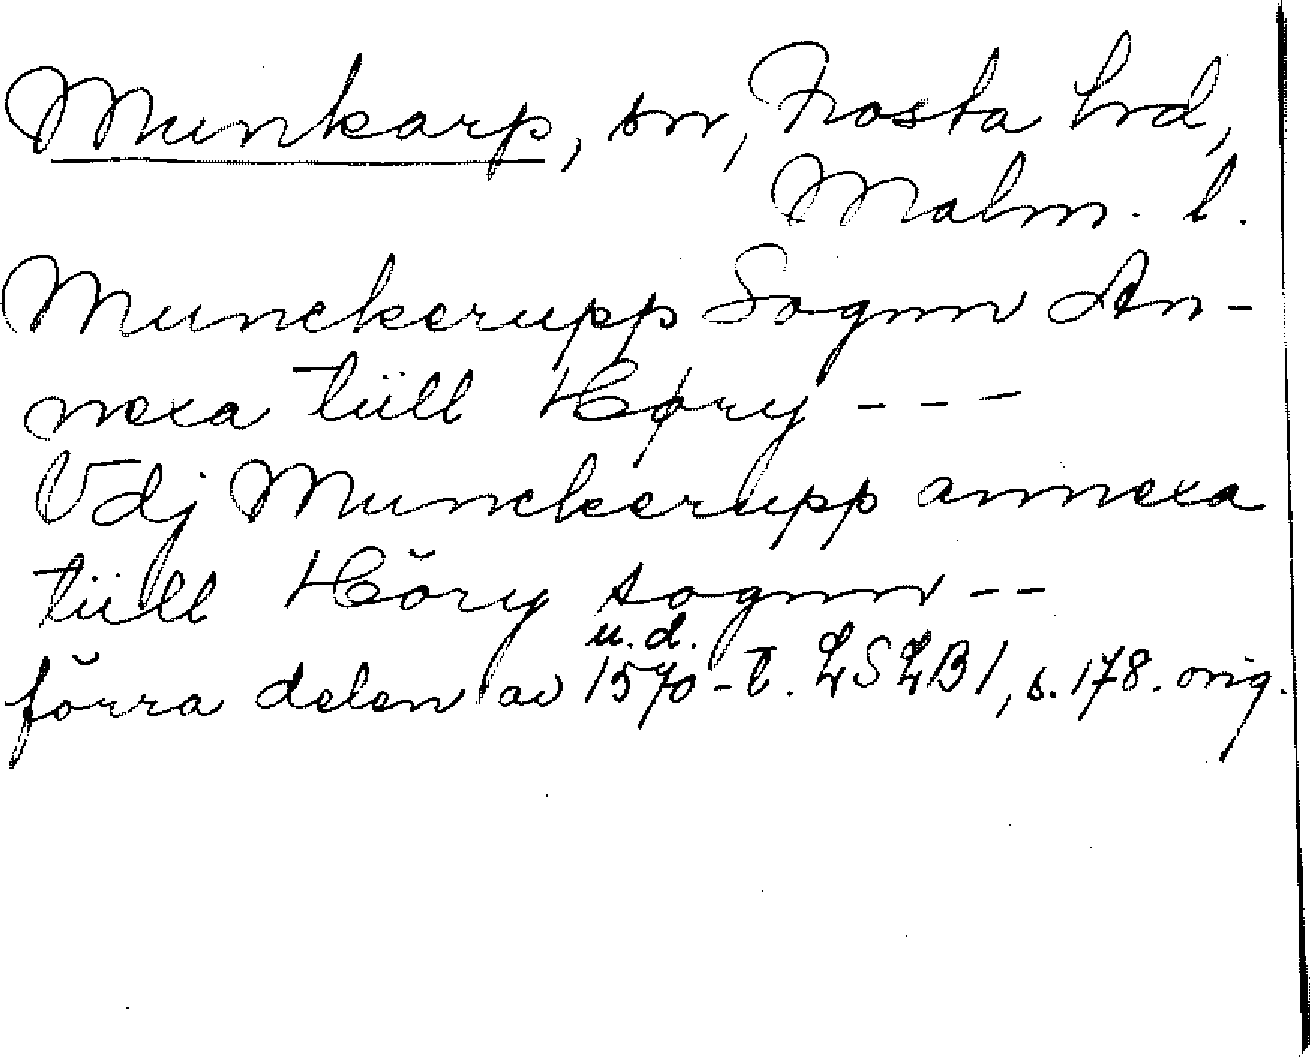 Munkarp, sn, Frosta hd,
Malm. l.
Munckerupp Sognn An-
nexa tiill Høry - - -
Vdj Munckerupp annexa
tiill Höry sognn - -
u. d.
förra delen av 1570-t. LSLB 1, s. 178. orig.